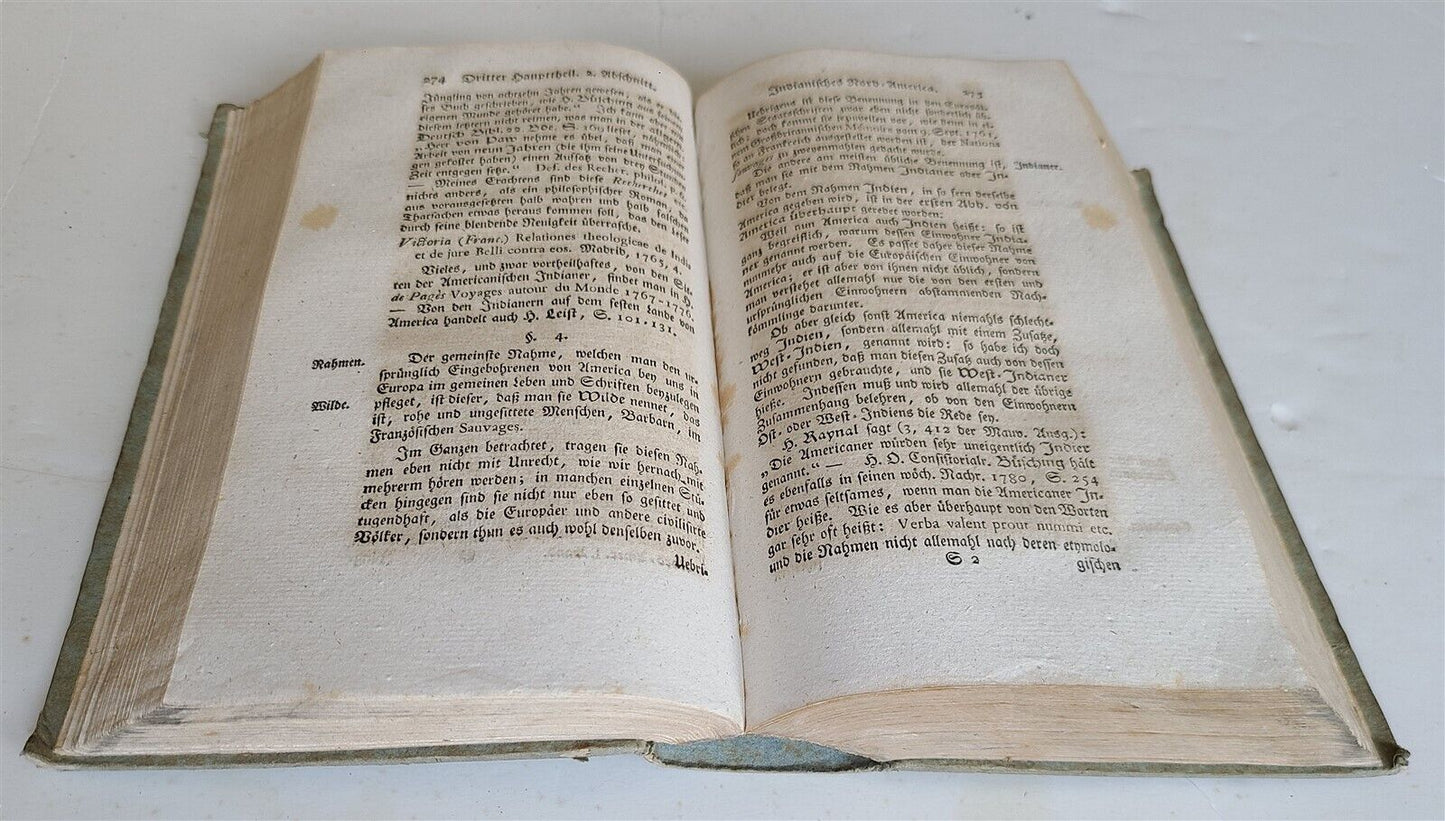 274 Dritter Haupttheil. 2. Abschnitt.
Jüngling von achtzehn Jahren gewesen, als er die-
ses Buch geschrieben, wie H. Büsching aus seinem
eigenen Munde gehöret habe.“ Ich kann aber
diesem letztern nicht reimen, was man in der allgem.
Deutsch. Bibl. 22 Bde. S. 169 lieset, nähmlich
„Herr von Paw nehme es übel, daß man einer
Arbeit von neun Jahren (die ihm seine Untersuchun-
gen gekostet haben) einen Aufsatz von drey Stunden
Zeit entgegen setze.“ Def. des Recher. philos. p. 67.
— Meines Erachtens sind diese Recherches
nichts anders, als ein philosophischer Roman, da
aus vorausgesetzten halb wahren und halb falschen
Thatsachen etwas heraus kommen soll, das den Leser
durch seine blendende Neuigkeit überrasche.
Victoria (Franc.) Relationes theologicae de Indis
et de jure Belli contra eos. Madrid, 1765, 4.
Vieles, und zwar vortheilhaftes, von den Sit-
ten der Americanischen Indianer, findet man in H.
de Pagès Voyages autour du Monde 1767-1776.
— Von den Indianern auf dem festen Lande von
America handelt auch H. Leist, S. 101-131.
§. 4.
Nahmen.
Der gemeinste Nahme, welchen man den ur-
sprünglich Eingebohrenen von America bey uns in
Europa im gemeinen Leben und Schriften beyzulegen
Wilde.
pfleget, ist dieser, daß man sie Wilde nennet, das
ist, rohe und ungesittete Menschen, Barbarn, im
Französischen Sauvages.
Im Ganzen betrachtet, tragen sie diesen Nah-
men eben nicht mit Unrecht, wie wir hernach mit
mehrerm hören werden; in manchen einzelnen Stü-
cken hingegen sind sie nicht nur eben so gesittet und
tugendhaft, als die Europäer und andere civilisirte
Völker, sondern thun es auch wohl denselben zuvor.
Uebri-
Indianisches Nord-America. 275
Uebrigens ist diese Benennung in den Europäi-
schen Staatsschriften zwar eben nicht sonderlich üb-
lich, doch kommt sie zuweilen vor, wie denn in ei-
nem Großbritannischen Mémoire vom 9. Sept. 1761,
so an Frankreich ausgestellet worden ist, der Nations
sauvages zu zweyenmahlen gedacht wurde.
Die andere am meisten übliche Benennung ist,
Indianer.
daß man sie mit dem Nahmen Indianer oder In-
dier belegt.
Von dem Nahmen Indien, in so fern derselbe
America gegeben wird, ist in der ersten Abh. von
America überhaupt geredet worden:
Weil nun America auch Indien heißt: so ist
ganz begreiflich, warum dessen Einwohner India-
ner genannt werden. Es passet daher dieser Nahme
nunmehr auch auf die Europäischen Einwohner von
America; er ist aber von ihnen nicht üblich, sondern
man verstehet allemahl nur die von den ersten und
ursprünglichen Einwohnern abstammenden Nach-
kömmlinge darunter.
Ob aber gleich sonst America niemahls schlecht-
weg Indien, sondern allemahl mit einem Zusatze,
West-Indien, genannt wird: so habe ich doch
nicht gefunden, daß man diesen Zusatz auch von dessen
Einwohnern gebrauchte, und sie West-Indianer
hieße. Indessen muß und wird allemahl der übrige
Zusammenhang belehren, ob von den Einwohnern
Ost- oder West-Indiens die Rede sey.
H. Raynal sagt (3, 412 der Mauv. Ausg.):
„Die Americaner würden sehr uneigentlich Indier
genannt.“ — H. O. Consistorialr. Büsching hält
es ebenfalls in seinen wöch. Nachr. 1780, S. 254
für etwas seltsames, wenn man die Americaner In-
dier heiße. Wie es aber überhaupt von den Worten
gar sehr oft heißt: Verba valent prout nummi etc.
und die Nahmen nicht allemahl nach deren etymolo-
S 2 gischen